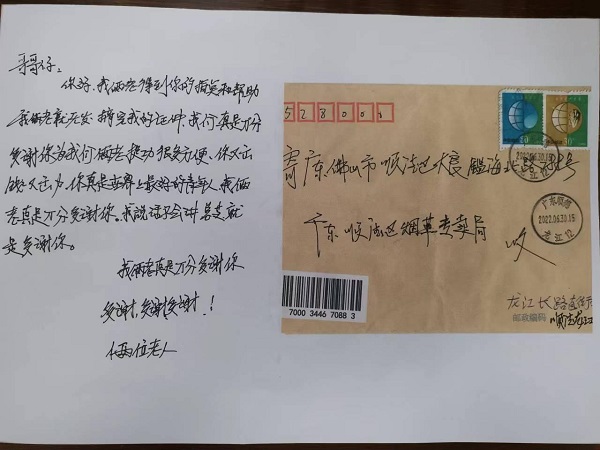 哥哥仔:
你好,我俩老得到你的指负和帮助
我俩老就无发搞完我的证件,我们真是万分
多谢你为我们俩老提功很多方便,你又出
钱又出力,你真是世界上最好的青年人,我俩
老真是万分多谢你,我说话不会讲总之就
是多谢你。
我俩老真是万分多谢你
多谢,多谢多谢!
俩位老人
528001
寄广东佛山市顺德区大良鑑海北路
广东顺德区烟草专卖局
收
龙江长路直街
邮政编码 顺德龙江
7000 3446 7088 3
广东顺德
2022.06.30.15
龙江12
2022.06.30.15
龙江12